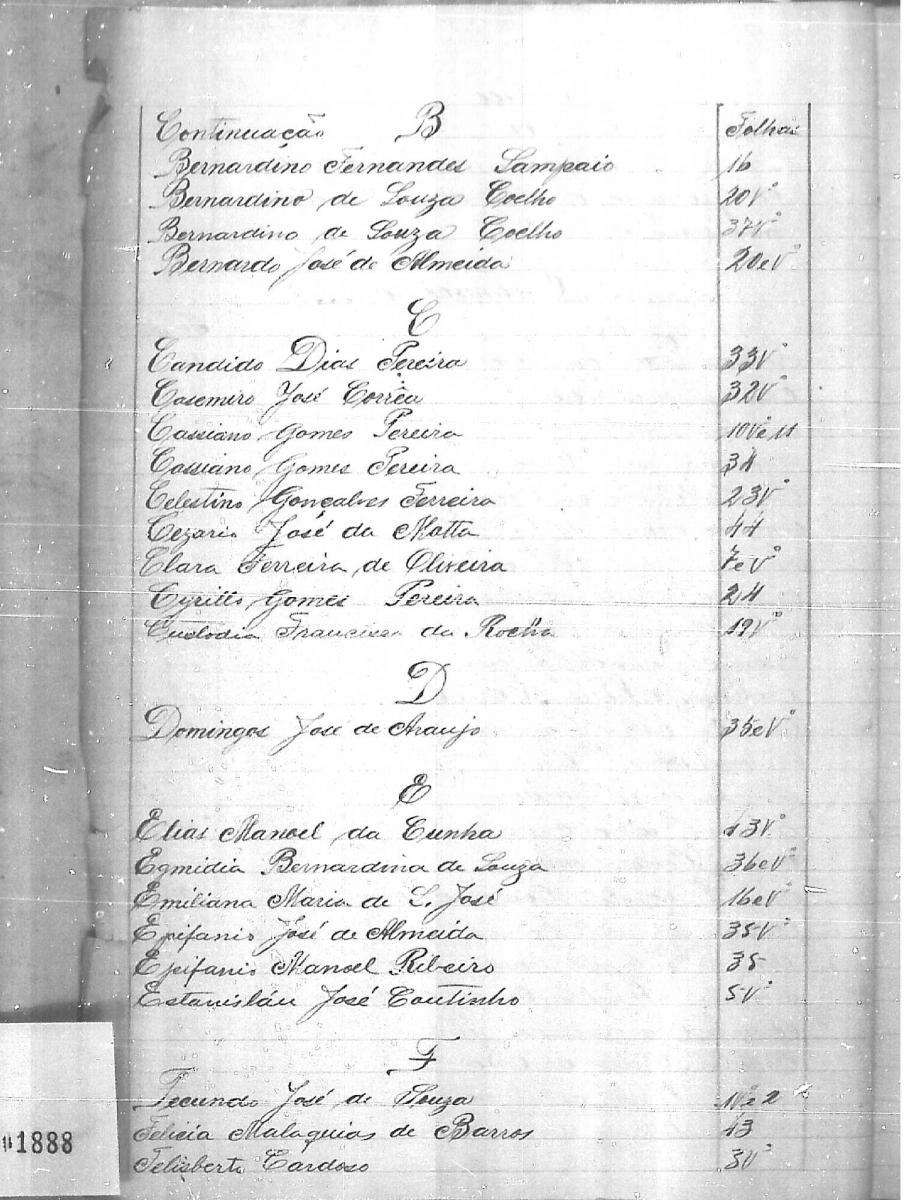 Continuação B Folhas
Bernardino Fernandes Sampaio 16
Bernardino de Souza Coelho 20Vº
Bernardino de Souza Coelho 37Vº
Bernardo José de Almeida 20eVº
C
Candido Dias Pereira 33Vº
Casemiro José Corrêa 32Vº
Cassiano Gomes Pereira 10Vºe11
Cassiano Gomes Pereira 34
Celestino Gonçalves Ferreira 23Vº
Cezario José da Motta 44
Clara Ferreira de Oliveira 7eVº
Cyrillo Gomes Pereira 24
Custodia Francisca da Rocha 19Vº
D
Domingos José de Araujo 35eVº
E
Elias Manoel da Cunha 13Vº
Egmidia Bernardina de Souza 36eVº
Emiliana Maria de S. José 16eVº
Epifanio José de Almeida 35Vº
Epifanio Manoel Ribeiro 35
Estanisláu José Coutinho 5Vº
F
Fecundo José de Souza 1Vºe2
Felicia Malaquias de Barros 43
Felisberto Cardoso 3Vº
1888